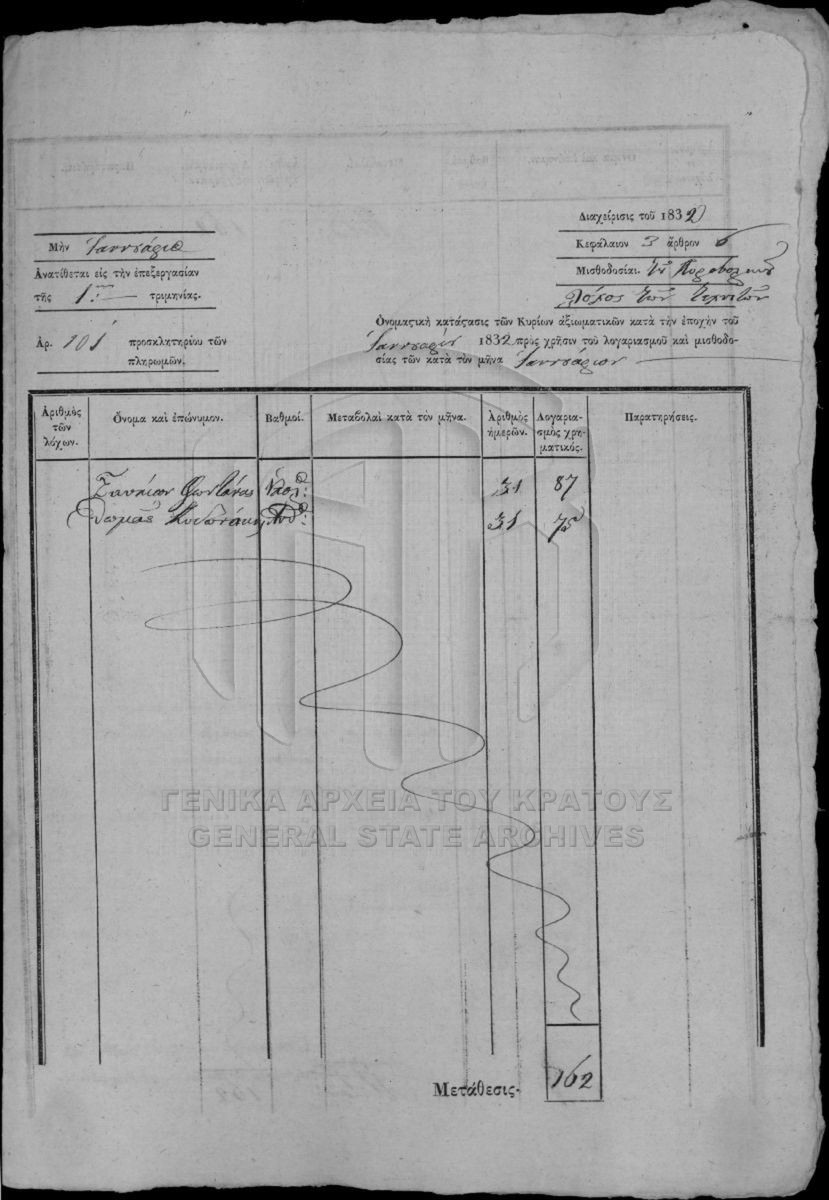 Διαχείρισις τοῦ 1832
Μὴν Ἰαννουάριος
Κεφάλαιον 3 ἄρθρον 6
Ἀνατίθεται εἰς τὴν ἐπεξεργασίαν
Μισθοδοσίαι. τοῦ Πυροβολικοῦ
τῆς 1ης τριμηνίας.
Λόχος τῶν Τεχνιτῶν
Ἀρ. 101 προσκλητηρίου τῶν
πληρωμῶν.
Ὀνομαςικὴ κατάςασις τῶν Κυρίων ἀξιωματικῶν κατὰ τὴν ἐποχὴν τοῦ
Ἰαννουαρίου 1832 πρὸς χρῆσιν τοῦ λογαριασμοῦ καὶ μισθοδο-
σίας τῶν κατὰ τὸν μῆνα Ἰαννουάριον
Ἀριθμὸς τῶν λόχων.
Ὄνομα καὶ ἐπώνυμον.
Βαθμοί.
Μεταβολαὶ κατὰ τὸν μῆνα.
Ἀριθμὸς ἡμερῶν.
Λογαρια-σμὸς χρη-ματικός.
Παρατηρήσεις.
Φωντάνας 31 87
Θωμᾶς 31 75
ΓΕΝΙΚΑ ΑΡΧΕΙΑ ΤΟΥ ΚΡΑΤΟΥΣ
GENERAL STATE ARCHIVES
Μετάθεσις. 162